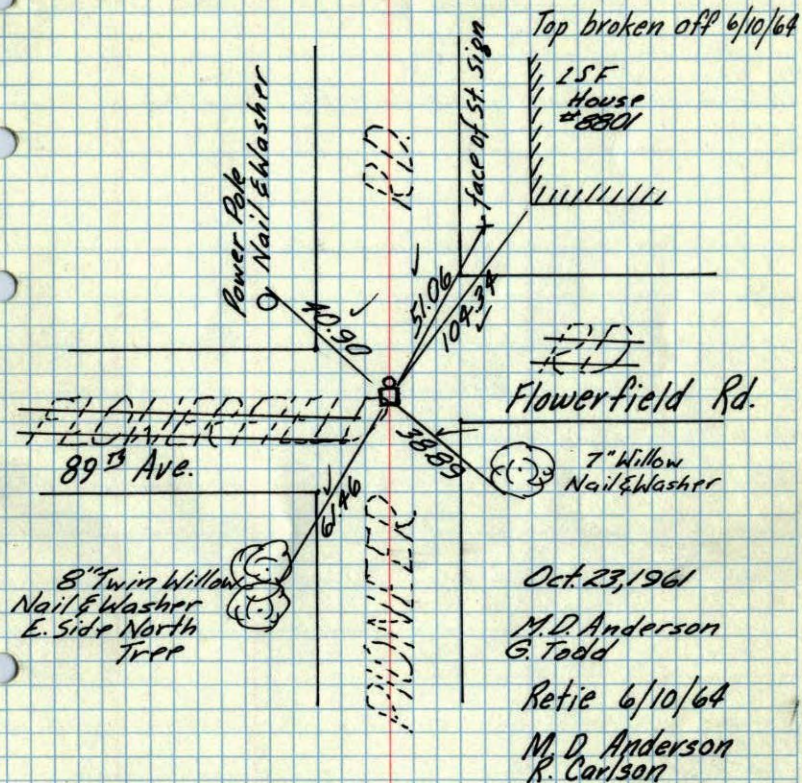 Top broken off 6/10/64
1SF
House
#8801
face of St. Sign
RD.
Power Pole
Nail & Washer
40.90
51.06
104.34
RD
FLOWERFIELD
Flowerfield Rd.
89th Ave.
38.89
7" Willow
Nail & Washer
61.46
PIONEER
8" Twin Willow
Nail & Washer
E. Side North
Tree
Oct. 23, 1961
M.D. Anderson
G. Todd
Retie 6/10/64
M. D. Anderson
R. Carlson